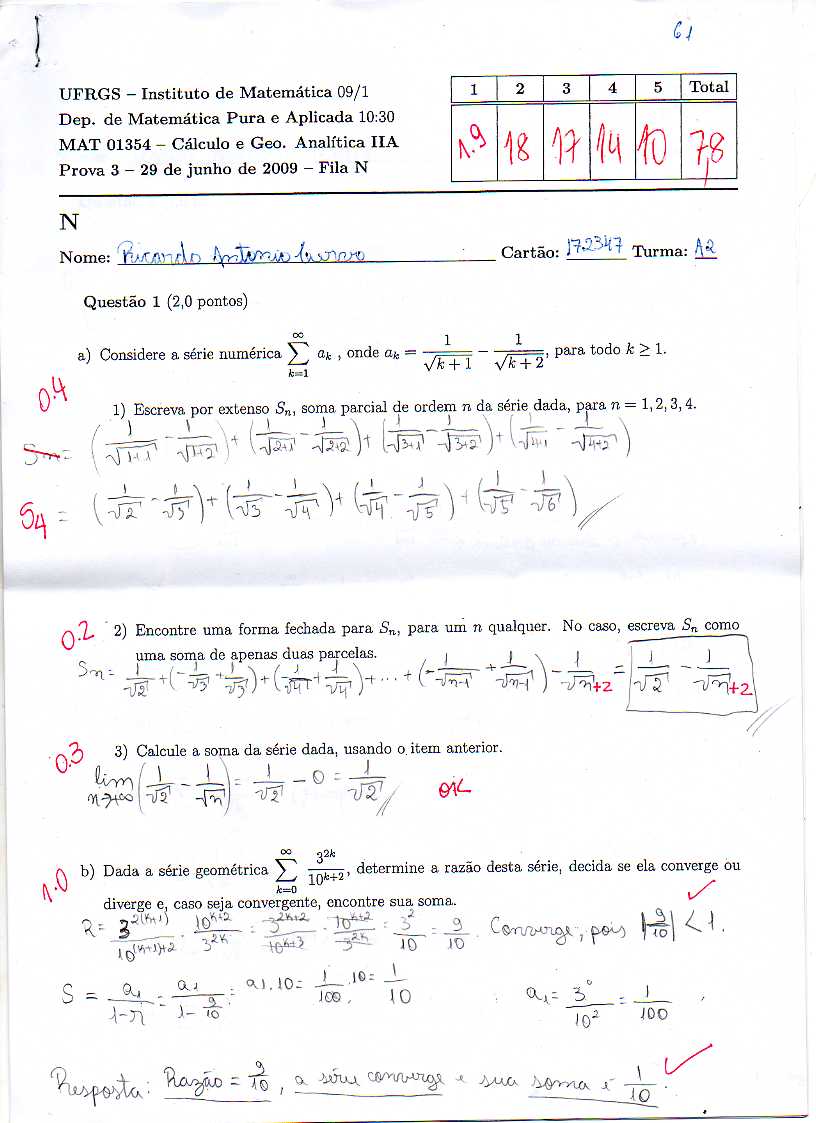 61
UFRGS – Instituto de Matemática 09/1
Dep. de Matemática Pura e Aplicada 10:30
MAT 01354 – Cálculo e Geo. Analítica IIA
Prova 3 – 29 de junho de 2009 – Fila N
1 2 3 4 5 Total
1.9 18 17 14 10 7,8
N
Nome: Ricardo Antonio Cartão: 172347 Turma: A2
Questão 1 (2,0 pontos)
a) Considere a série numérica ∑_{k=1}^{∞} a_k , onde a_k = 1/√(k+1) − 1/√(k+2), para todo k ≥ 1.
0.4
1) Escreva por extenso S_n, soma parcial de ordem n da série dada, para n = 1, 2, 3, 4.
Sn = (1/√(1+1) − 1/√(1+2)) + (1/√(2+1) − 1/√(2+2)) + (1/√(3+1) − 1/√(3+2)) + (1/√(4+1) − 1/√(4+2))
S4 = (1/√2 − 1/√3) + (1/√3 − 1/√4) + (1/√4 − 1/√5) + (1/√5 − 1/√6)
0.2 2) Encontre uma forma fechada para S_n, para um n qualquer. No caso, escreva S_n como
uma soma de apenas duas parcelas.
Sn = 1/√2 + (−1/√3 + 1/√3) + (−1/√4 + 1/√4) + ... + (−1/√(n−1) + 1/√(n−1)) − 1/√(n+2) = 1/√2 − 1/√(n+2)
0.3 3) Calcule a soma da série dada, usando o item anterior.
lim n→+∞ (1/√2 − 1/√n) = 1/√2 − 0 = 1/√2 OK
1.0 b) Dada a série geométrica ∑_{k=0}^{∞} 3^{2k}/10^{k+2}, determine a razão desta série, decida se ela converge ou
diverge e, caso seja convergente, encontre sua soma.
R = 3^{2(k+1)}/10^{(k+1)+2} · 10^{k+2}/3^{2k} = 3^{2k+2}/10^{k+3} · 10^{k+2}/3^{2k} = 3^2/10 = 9/10. Converge, pois |9/10| < 1.
S = a1/(1−r) = a1/(1 − 9/10) = a1.10 = 1/100 .10 = 1/10 a1 = 3^0/10^2 = 1/100
Resposta: Razão = 9/10, a série converge e sua soma é 1/10.